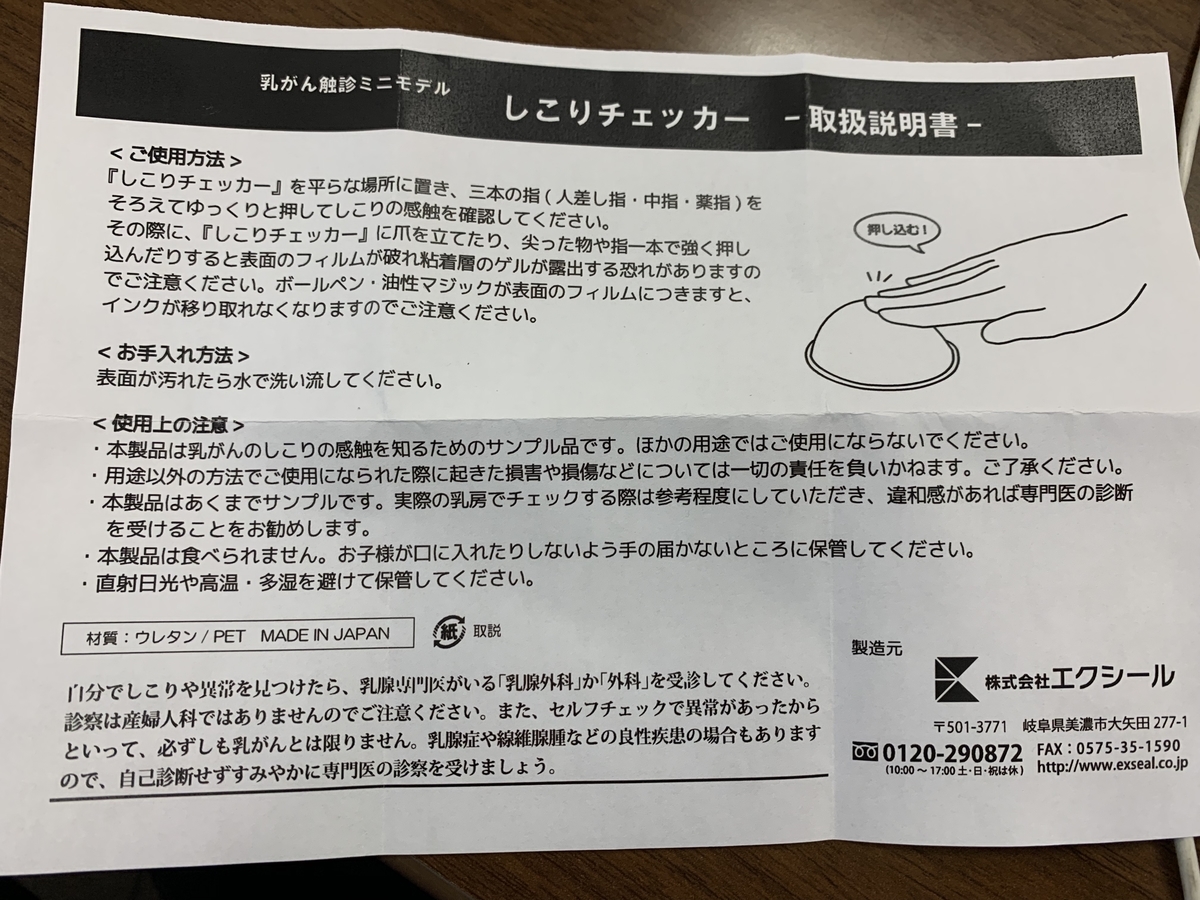 乳がん触診ミニモデル
しこりチェッカー －取扱説明書－
＜ご使用方法＞
『しこりチェッカー』を平らな場所に置き、三本の指（人差し指・中指・薬指）を
そろえてゆっくりと押してしこりの感触を確認してください。
その際に、『しこりチェッカー』に爪を立てたり、尖った物や指一本で強く押し
込んだりすると表面のフィルムが破れ粘着層のゲルが露出する恐れがありますの
でご注意ください。ボールペン・油性マジックが表面のフィルムにつきますと、
インクが移り取れなくなりますのでご注意ください。
押し込む！
＜お手入れ方法＞
表面が汚れたら水で洗い流してください。
＜使用上の注意＞
・本製品は乳がんのしこりの感触を知るためのサンプル品です。ほかの用途ではご使用にならないでください。
・用途以外の方法でご使用になられた際に起きた損害や損傷などについては一切の責任を負いかねます。ご了承ください。
・本製品はあくまでサンプルです。実際の乳房でチェックする際は参考程度にしていただき、違和感があれば専門医の診断
を受けることをお勧めします。
・本製品は食べられません。お子様が口に入れたりしないよう手の届かないところに保管してください。
・直射日光や高温・多湿を避けて保管してください。
材質：ウレタン / PET MADE IN JAPAN
紙 取説
自分でしこりや異常を見つけたら、乳腺専門医がいる「乳腺外科」か「外科」を受診してください。
診察は産婦人科ではありませんのでご注意ください。また、セルフチェックで異常があったから
といって、必ずしも乳がんとは限りません。乳腺症や線維腺腫などの良性疾患の場合もあります
ので、自己診断せずすみやかに専門医の診察を受けましょう。
製造元
株式会社エクシール
〒501-3771 岐阜県美濃市大矢田 277-1
0120-290872
(10:00 ～ 17:00 土・日・祝は休)
FAX：0575-35-1590
http://www.exseal.co.jp